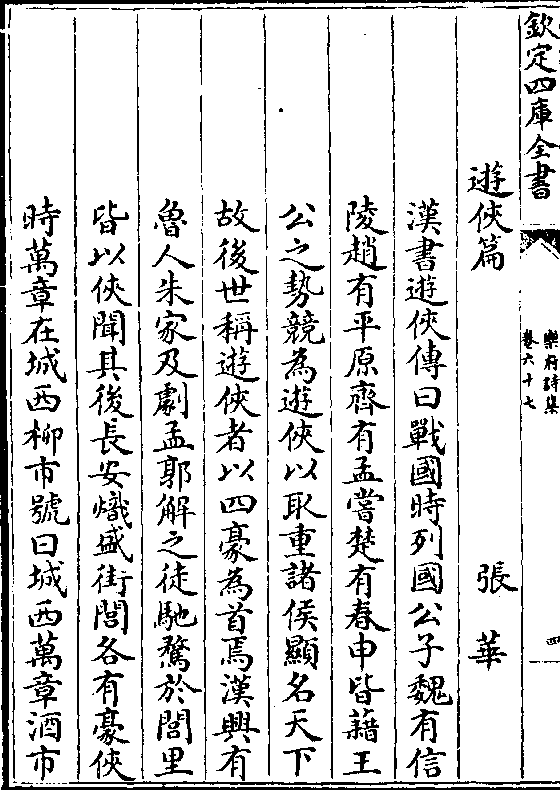 欽定四庫全書
樂府詩集
卷六十七
四
遊俠篇 張華
漢書遊俠傳曰戰國時列國公子魏有信
陵趙有平原齊有孟嘗楚有春申皆藉王
公之勢競為遊俠以取重諸侯顯名天下
故後世稱遊俠者以四豪為首焉漢興有
魯人朱家及劇孟郭解之徒馳騖於閭里
皆以俠聞其後長安熾盛街閭各有豪俠
時萬章在城西柳市號曰城西萬章酒市